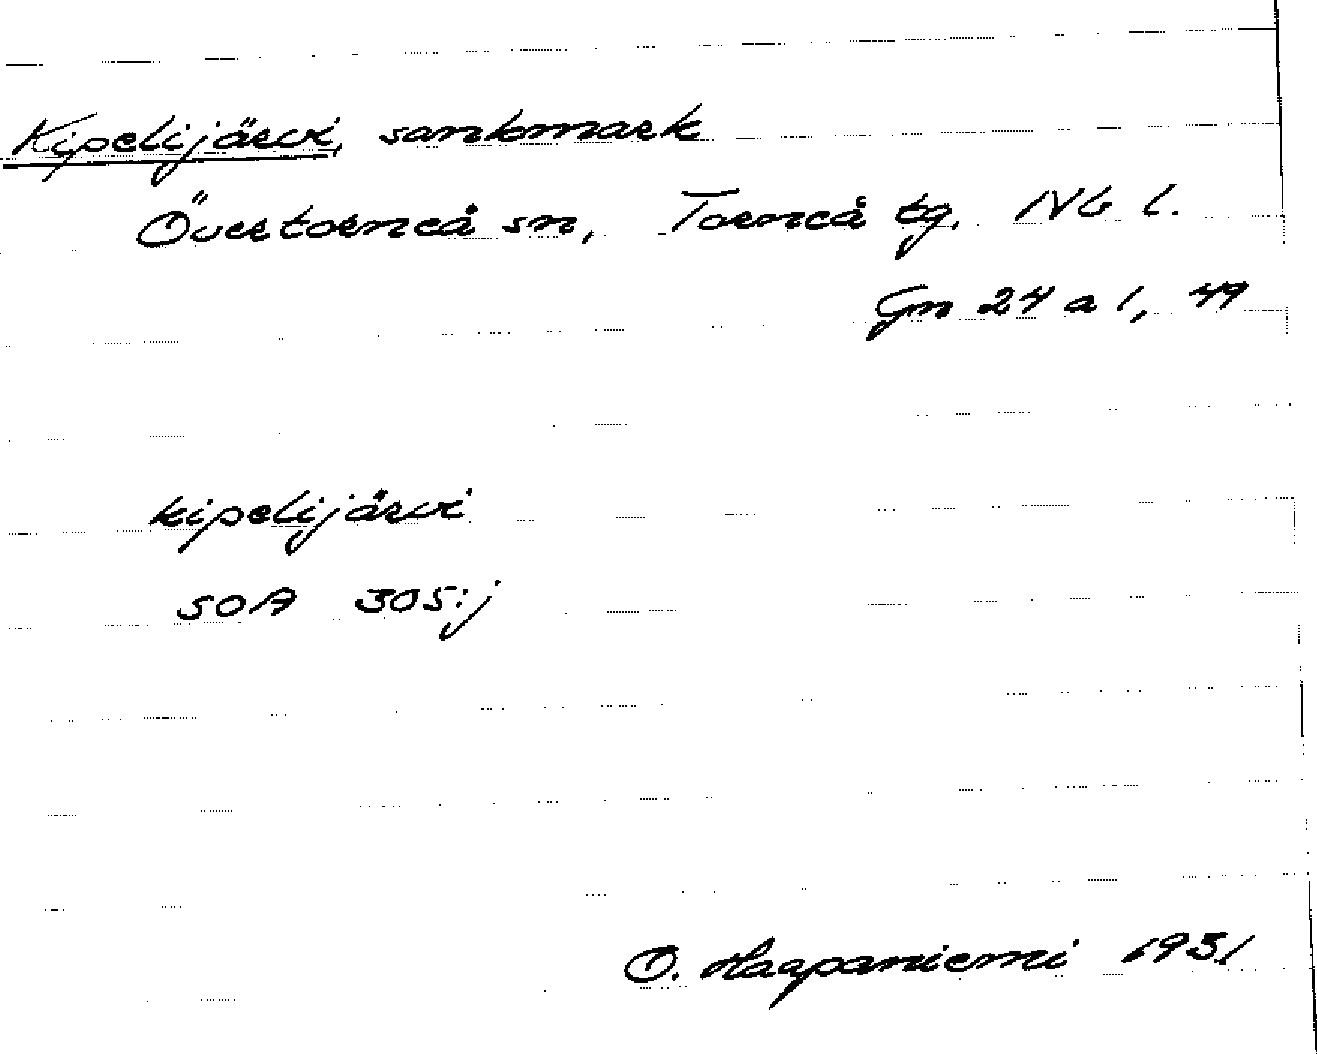 Kipelijärvi, sankmark
Övertorneå sn, Torneå tg. Nb l.
Gn 24 a 1, 49
kipelijärvi
SOA 305:j
O. Haapaniemi 1931